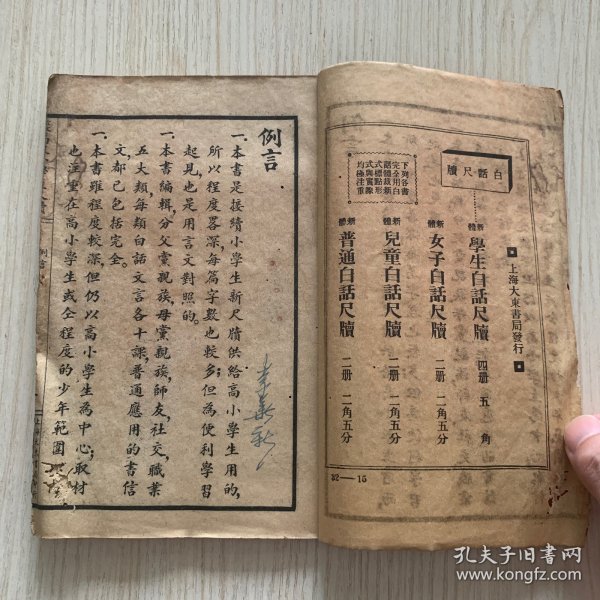 上海大東書局發行
白話尺牘
下列各書
完全用白
話體裁新
式標點形
式與實際
均極注重
新體 學生白話尺牘 四册 五角
新體 女子白話尺牘 二册 二角五分
新體 兒童白話尺牘 二册 二角五分
新體 普通白話尺牘 二册 二角五分
32—15
例言
一本書是接續小學生新尺牘供給高小學生用的,
所以程度畧深,每篇字數也較多;但為便利學習
起見,也是用言文對照的。
一本書編輯,分父黨親族,母黨親族,師友,社交,職業
五大類,每類白話文言各十課,普通應用的書信
文,都已包括完全。
一本書雖程度較深,但仍以高小學生為中心;取材
也注重在高小學生或仝程度的少年範圍
例言
孔夫子旧书网
www.kongfz.com